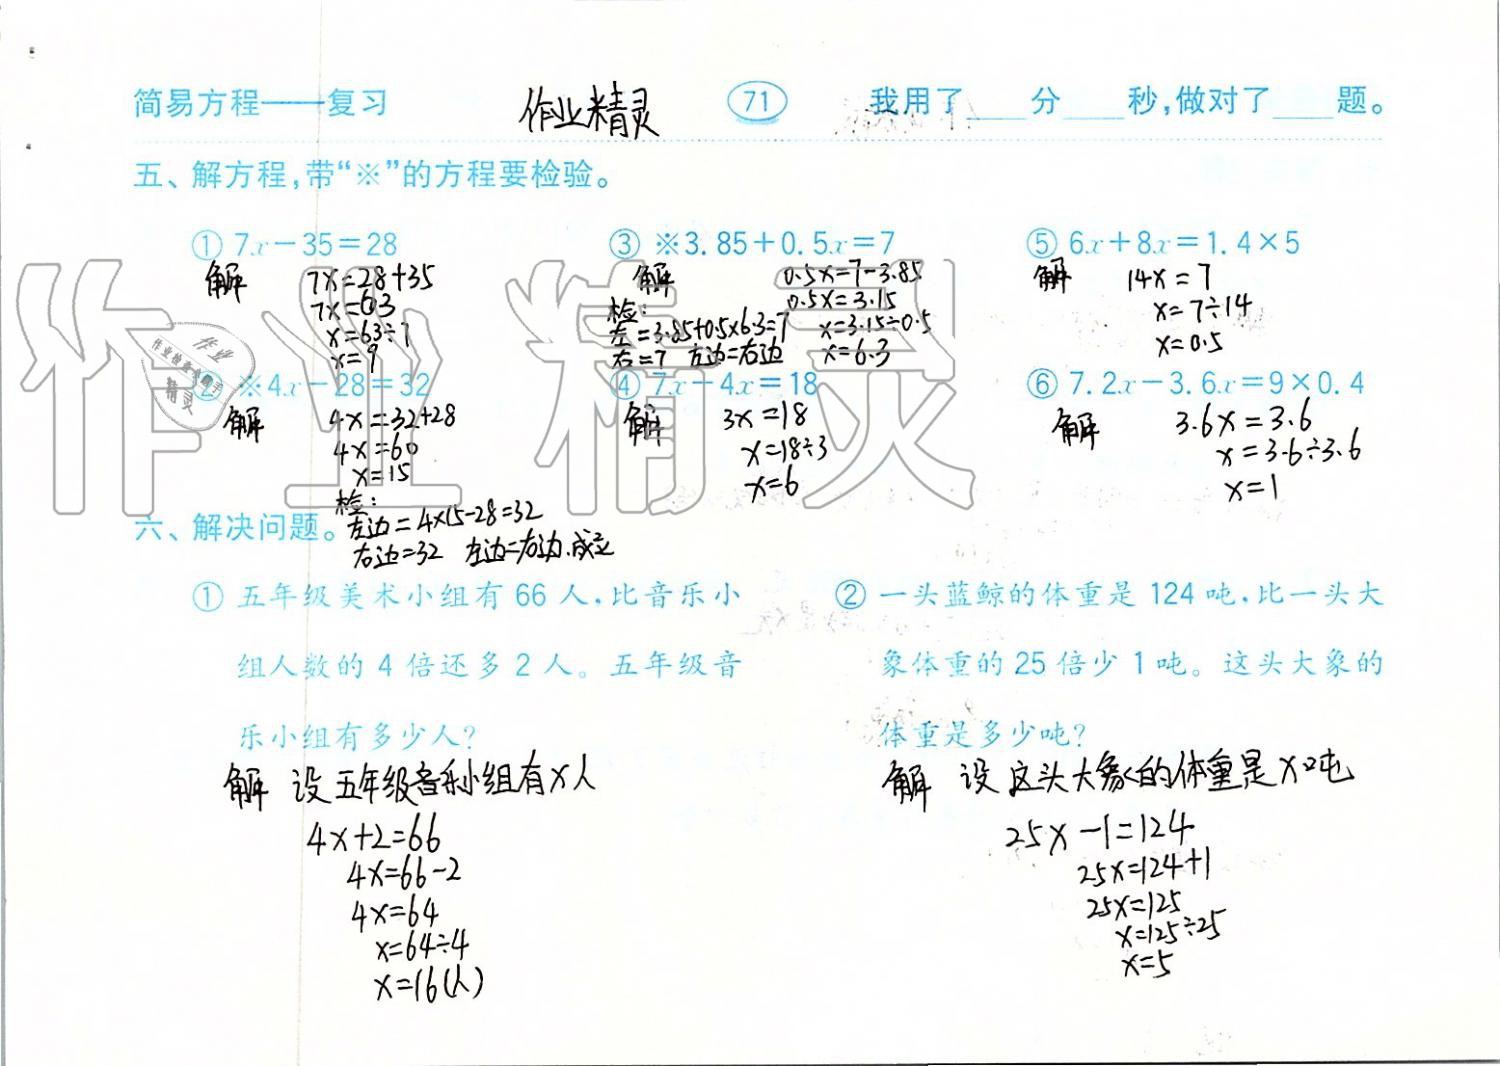 简易方程——复习 作业精灵 71 我用了____分____秒,做对了____题。
五、解方程,带“※”的方程要检验。
① 7x-35=28
解 7x=28+35
7x=63
x=63÷7
x=9
② ※4x-28=32
解 4x=32+28
4x=60
x=15
检:
左边=4×15-28=32
右边=32 左边=右边.成立
③ ※3.85+0.5x=7
解 0.5x=7-3.85
0.5x=3.15
x=3.15÷0.5
x=6.3
检:
左=3.85+0.5×6.3=7
右=7 左边=右边
④ 7x-4x=18
解 3x=18
x=18÷3
x=6
⑤ 6x+8x=1.4×5
解 14x=7
x=7÷14
x=0.5
⑥ 7.2x-3.6x=9×0.4
解 3.6x=3.6
x=3.6÷3.6
x=1
六、解决问题。
① 五年级美术小组有66人,比音乐小
组人数的4倍还多2人。五年级音
乐小组有多少人?
解 设五年级音乐小组有x人
4x+2=66
4x=66-2
4x=64
x=64÷4
x=16(人)
② 一头蓝鲸的体重是124吨,比一头大
象体重的25倍少1吨。这头大象的
体重是多少吨?
解 设这头大象的体重是x吨
25x-1=124
25x=124+1
25x=125
x=125÷25
x=5
作业精灵